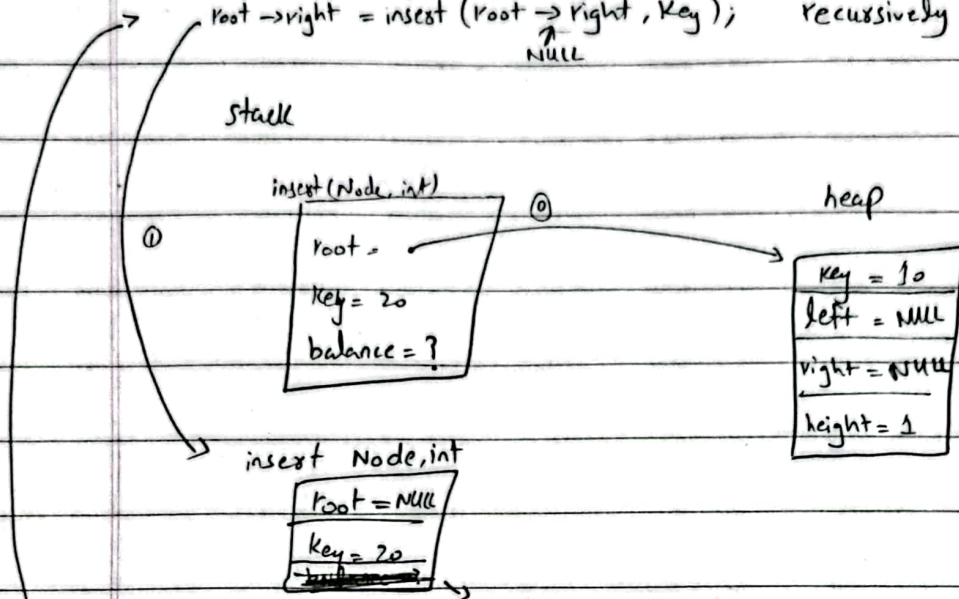 root →right = insert (root → right, Key); recursively
NULL
stack
insert(Node, int)
⓪
heap
root =
①
key = 10
Key = 20
left = NULL
balance = ?
right = NULL
height = 1
insert Node, int
root = NULL
key = 20